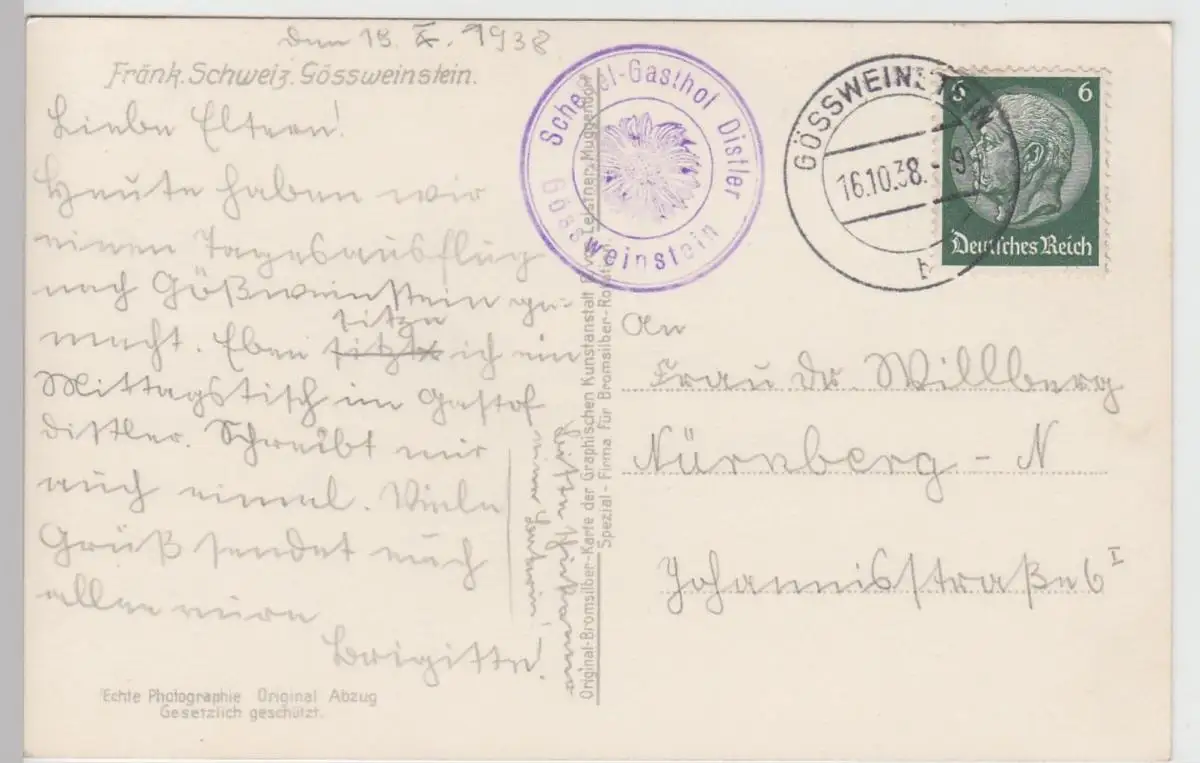 den 15. X. 1938
Fränk. Schweiz. Gössweinstein.
Liebe Eltern!
Heute haben wir
einen Tagesausflug
nach Gößweinstein ge-
macht. Eben sitze ich im
Mittagstisch im Gastof
Distler. Schreibt mir
auch einmal. Viele
Grüß sendet euch
allen eure
Brigitte!
Bitte schickt
Echte Photographie Original Abzug
Gesetzlich geschützt.
Scheffel-Gasthof Distler
Gössweinstein
Original-Bromsilber-Karte der Graphischen Kunstanstalt Leistner, Muggendorf
Spezial-Firma für Bromsilber-
GÖSSWEINSTEIN
16.10.38.-9
b
6 6
Deutsches Reich
An
Frau Dr. Willberg
Nürnberg - N
Johannisstraße 6 I